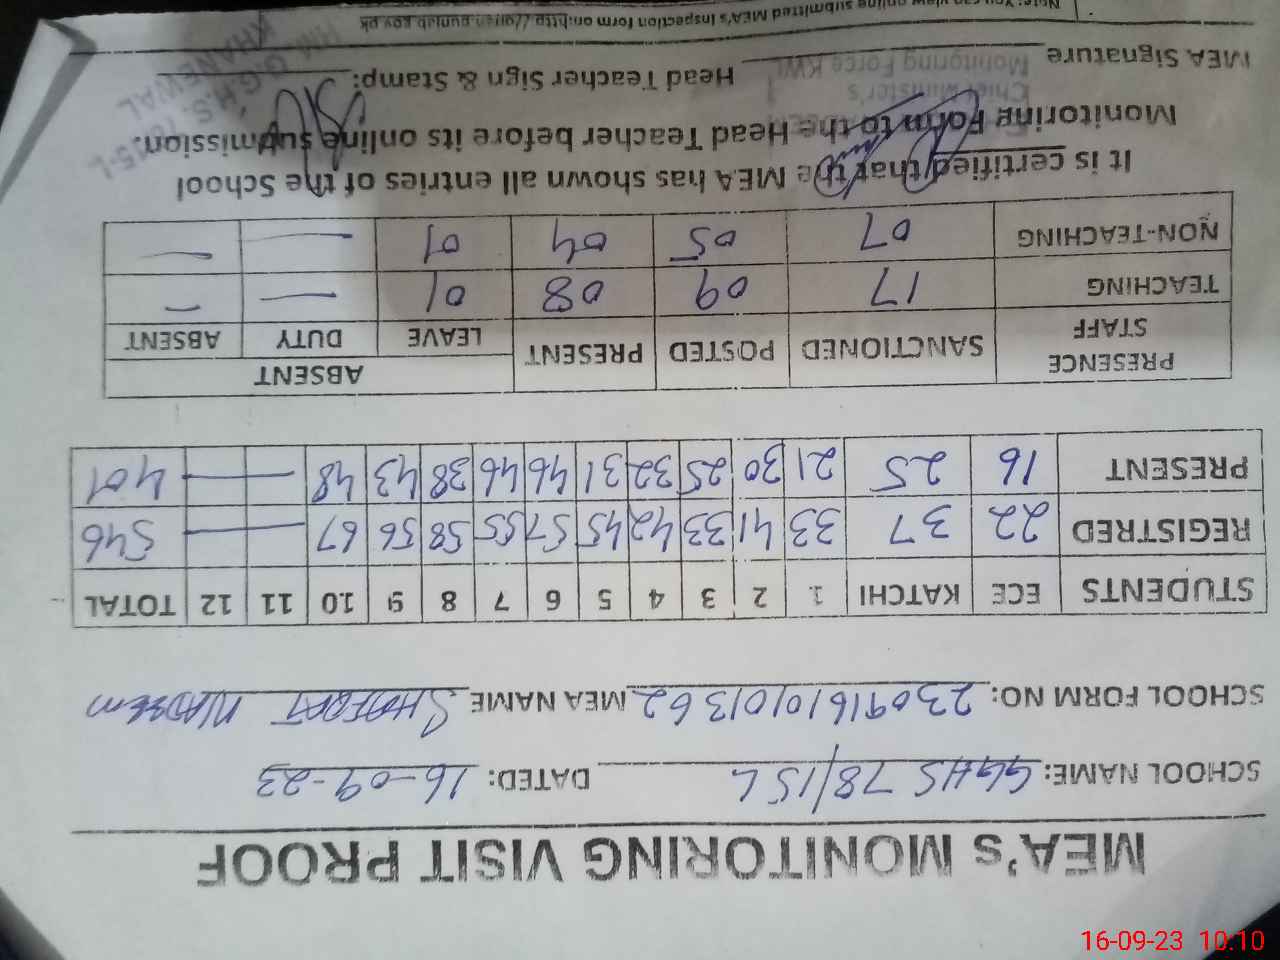 MEA's MONITORING VISIT PROOF
SCHOOL NAME: GGHS 78/15 L DATED: 16-09-23
SCHOOL FORM NO: MEA NAME SHAFQAT
STUDENTS ECE KATCHI 1 2 3 4 5 6 7 8 9 10 11 12 TOTAL
REGISTRED 22 37 33 41 33 42 45 57 55 58 56 67 — — 546
PRESENT 16 25 21 30 25 32 31 46 46 38 43 48 — — 401
PRESENCE STAFF SANCTIONED POSTED PRESENT ABSENT
LEAVE DUTY ABSENT
TEACHING 17 09 08 01 — —
NON-TEACHING 07 05 04 01 — —
It is certified that the MEA has shown all entries of the School
Monitoring Form to the Head Teacher before its online submission.
MEA Signature Head Teacher Sign & Stamp:
Chief Minister's
Monitoring Force KWL
KHANEWAL
Note: You can view online submitted MEA's inspection form on:http://open.punjab.gov.pk
16-09-23 10:10